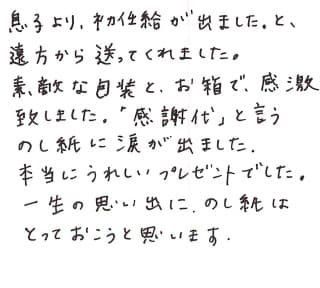 息子より、初任給が出ました。と、
遠方から送ってくれました。
素敵な包装と、お箱で、感激
致しました。「感謝代」と言う
のし紙に涙が出ました.
本当にうれしいプレゼントでした。
一生の思い出に、のし紙は
とっておこうと思います.